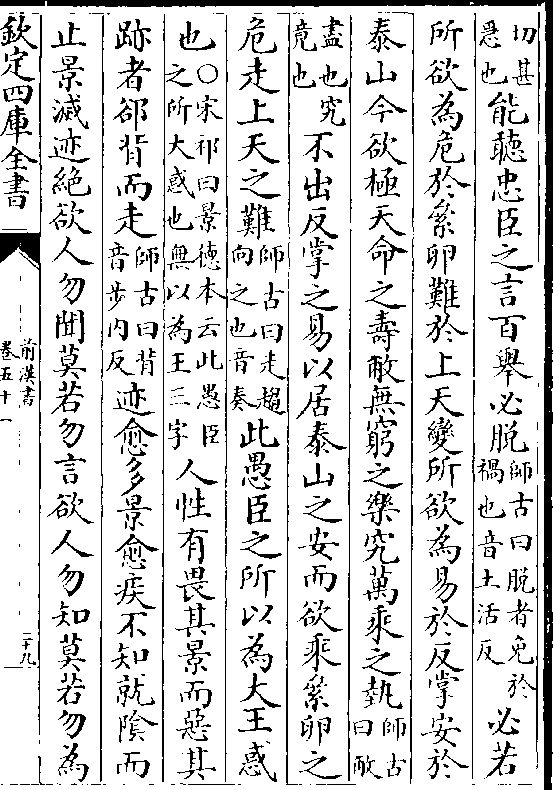 切甚惡也能聽忠臣之言百舉必脱師古曰脱者免於禍也音土活反必若
所欲為危於絫卵難於上天變所欲為易於反掌安於
泰山今欲極天命之壽敝無窮之樂究萬乘之埶師古曰敝
盡也究竟也不出反掌之易以居泰山之安而欲乘絫卵之
危走上天之難師古曰走趨向之也音奏此愚臣之所以為大王惑
也○宋祁曰景德本云此愚臣之所大惑也無以為王三字人性有畏其景而惡其
跡者郤背而走師古曰背音步内反迹愈多景愈疾不知就陰而
止景滅迹絶欲人勿聞莫若勿言欲人勿知莫若勿為
欽定四庫全書
前漢書
卷五十一
二十九